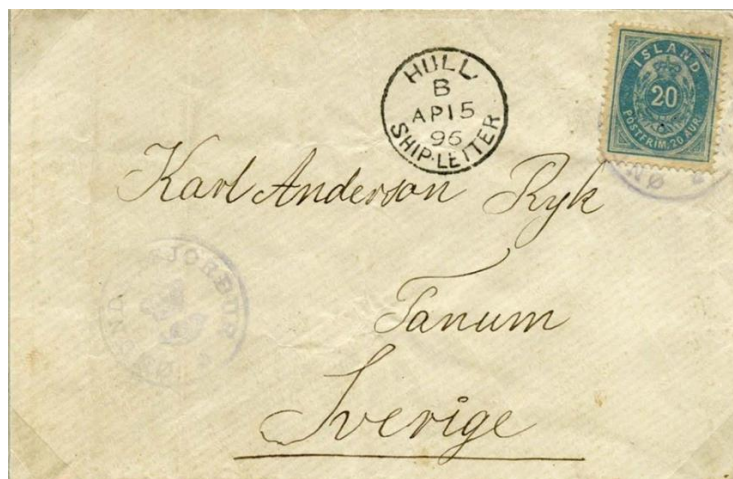 HULL
B
AP 15
96
SHIP-LETTER
ÍSLAND
20
PÓSTFRIM. 20 AUR.
Karl Anderson Ryk
Tanum
Sverige